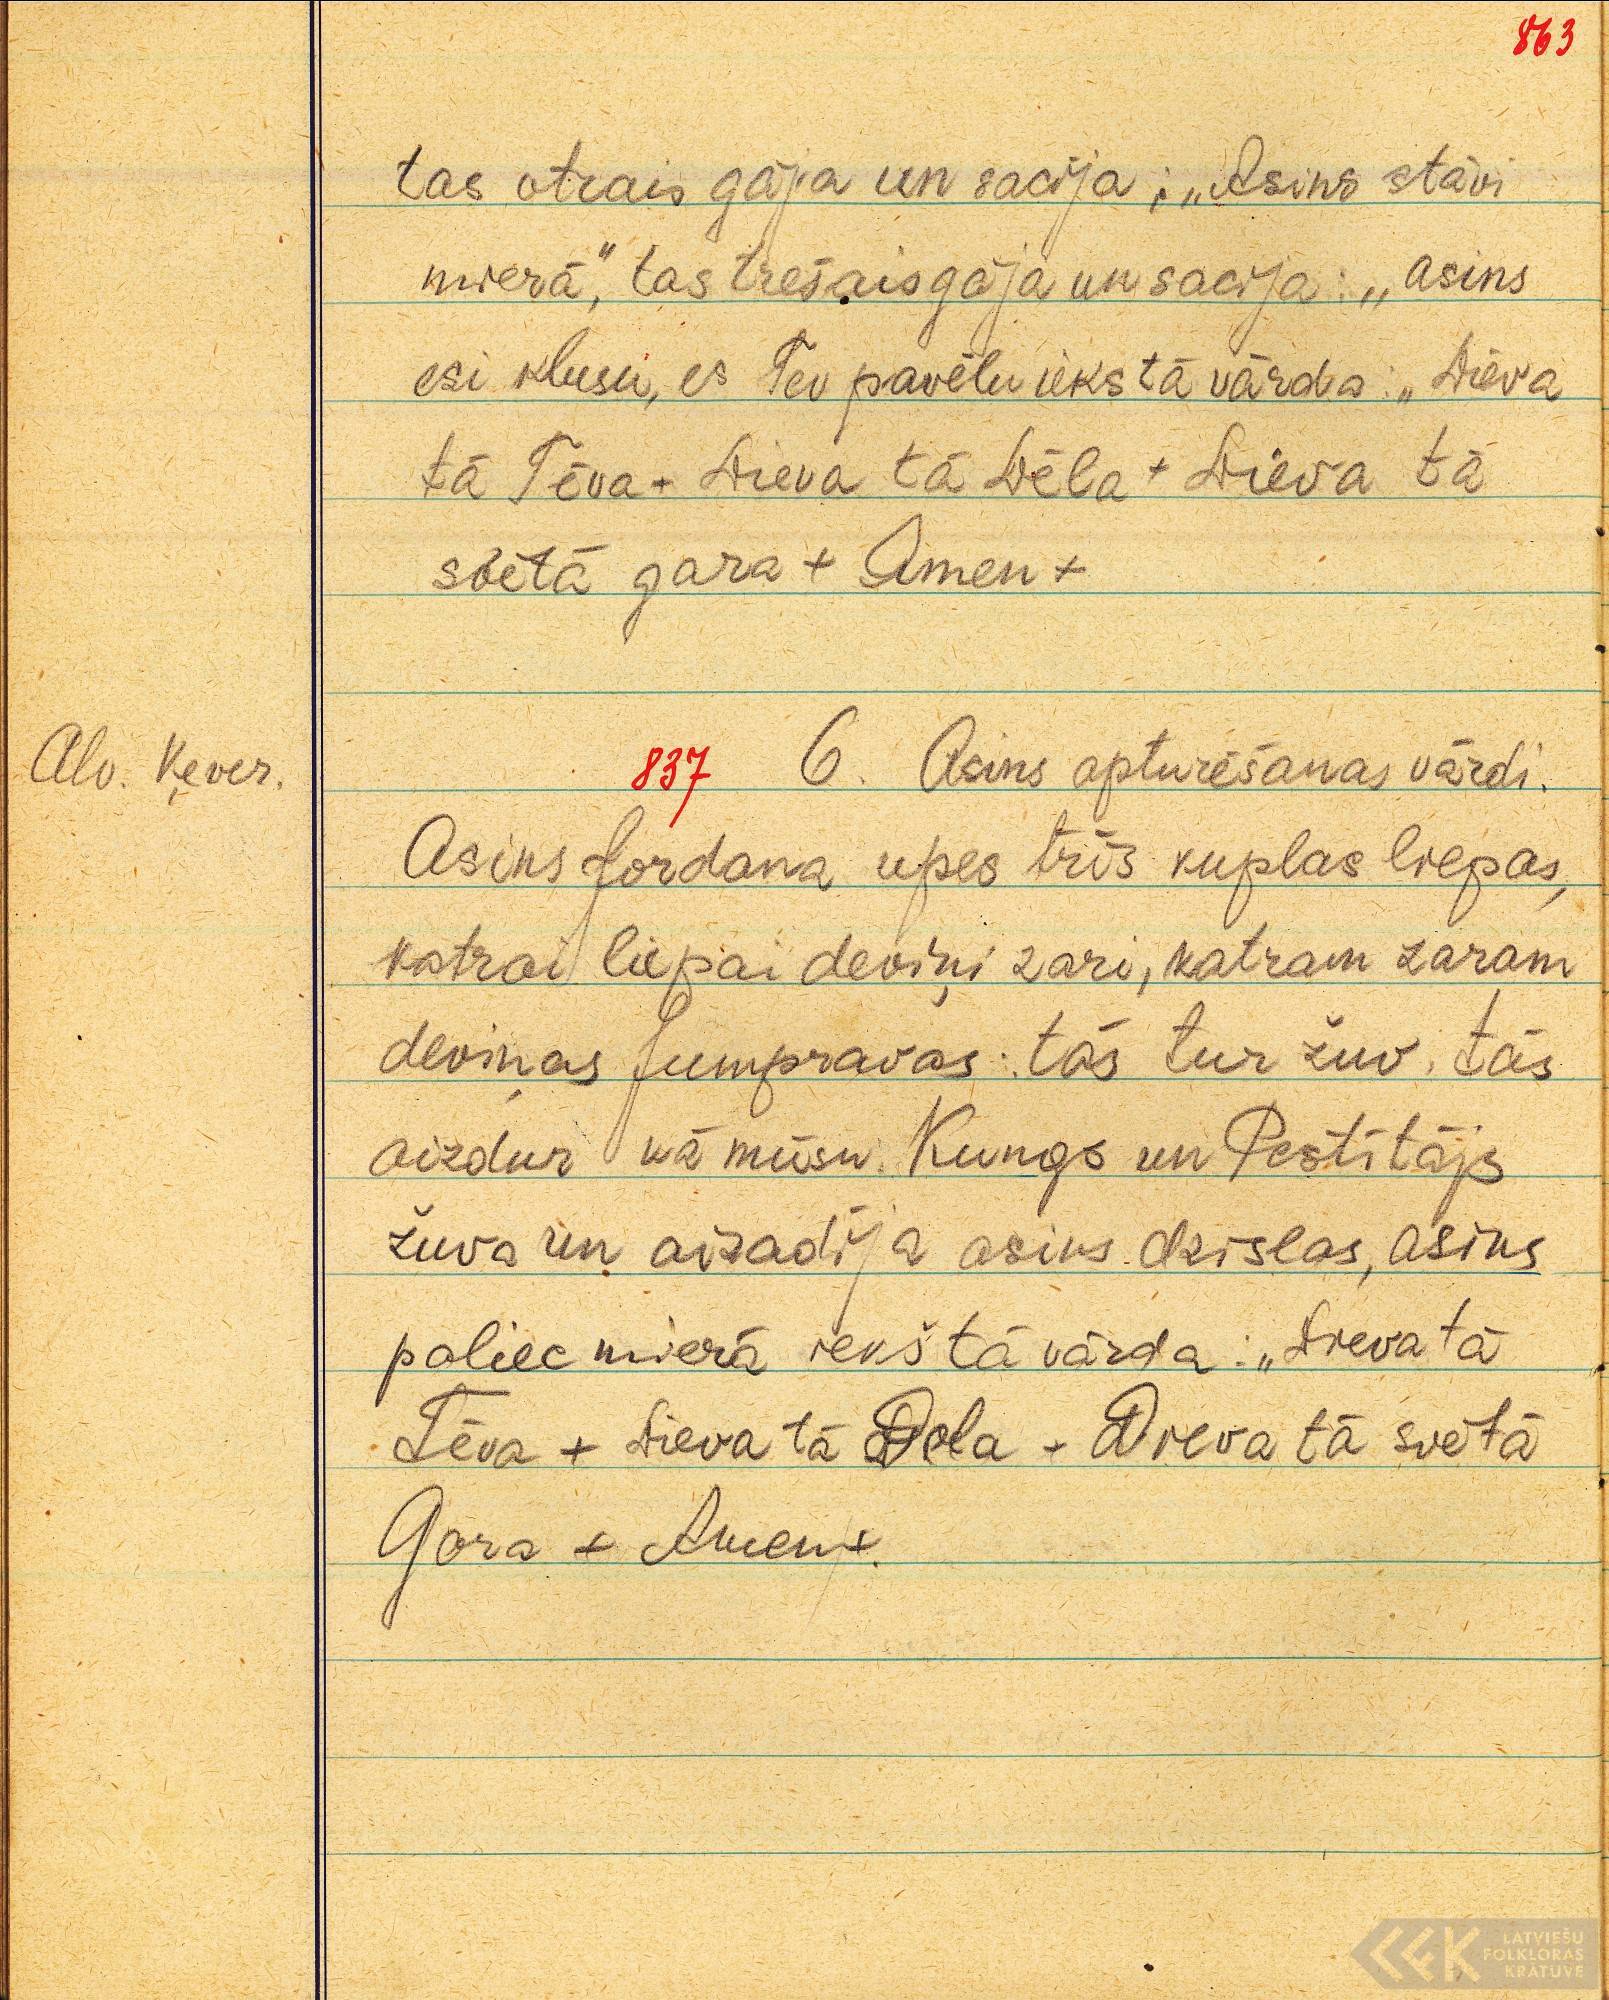 863
tas otrais gāja un sacīja; „Asins stāvi
mierā,” tas trešais gāja un sacīja: „asins
esi klusu, es Tev pavēlu iekš tā vārda: „Dieva
tā Tēva + Dieva tā Dēla + Dieva tā
svētā gara + Amen +
Alv. Ķever.
837 6. Asins apturēšanas vārdi.
Asins Jordana upes trīs kuplas liepas,
katrai liepai deviņi zari, katram zaram
deviņas Jumpravas: tās tur žuv. tās
aizdur kā mūsu Kungs un Pestītājs
žuva un aizadīja asins dzislas, asins
paliec mierā iekš tā vārda: „Dieva tā
Tēva + Dieva tā Dēla + Dieva tā svētā
Gara + Amen +.
LATVIEŠU
FOLKLORAS
KRĀTUVE